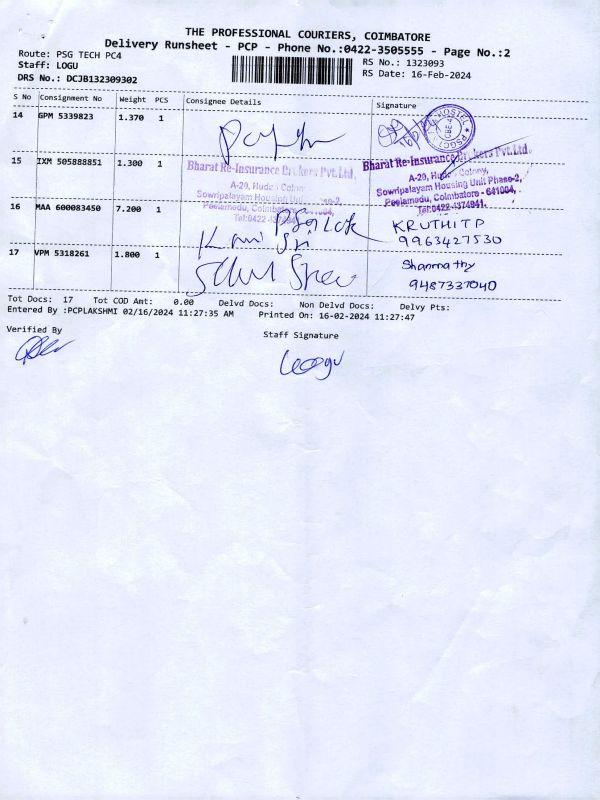 THE PROFESSIONAL COURIERS, COIMBATORE
Delivery Runsheet - PCP - Phone No.:0422-3505555 - Page No.:2
Route: PSG TECH PC4
Staff: LOGU
DRS No.: DCJB132309302
RS No.: 1323093
RS Date: 16-Feb-2024
S No Consignment No Weight PCS Consignee Details Signature
14 GPM 5339823 1.370 1
15 IXM 505888851 1.300 1
Bharat Re-Insurance Brokers Pvt.Ltd.,
A-29, Hudc Colony
Sowripalayam Housing
Peelamadu, Coimbatore
Bharat Re-Insurance Brokers Pvt.Ltd.,
A-29, Colony,
Sowripalayam Housing Unit Phase-2,
Peelamadu, Coimbatore - 641004,
Tel:0422-4374941.
16 MAA 600083450 7.200 1
KRUTHI T P
9963427530
17 VPM 5318261 1.800 1
Shanmathy
9487337040
Tot Docs: 17 Tot COD Amt: 0.00 Delvd Docs: Non Delvd Docs: Delvy Pts:
Entered By :PCPLAKSHMI 02/16/2024 11:27:35 AM Printed On: 16-02-2024 11:27:47
Verified By
Staff Signature
Loogu